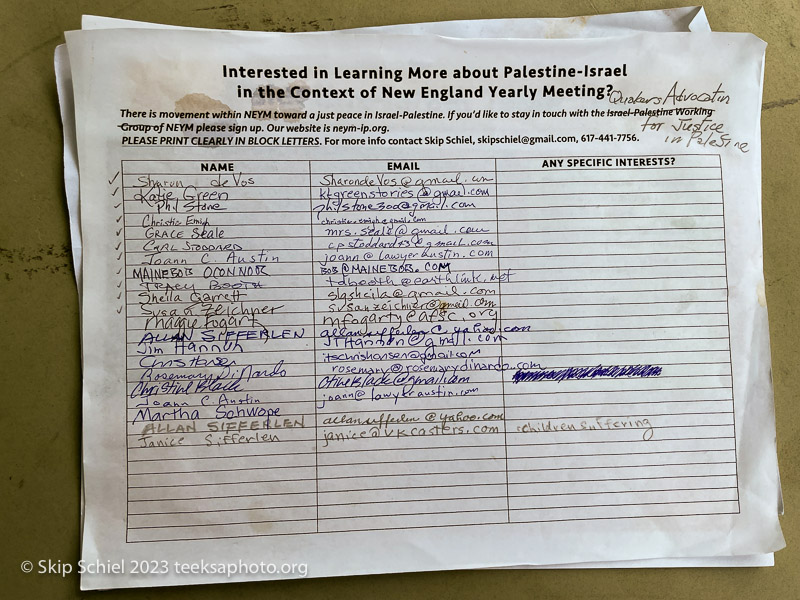 Interested in Learning More about Palestine-Israel
in the Context of New England Yearly Meeting?
Quakers Advocatin
for Justice
in Palestine
There is movement within NEYM toward a just peace in Israel-Palestine. If you'd like to stay in touch with the Israel-Palestine Working
Group of NEYM please sign up. Our website is neym-ip.org.
PLEASE PRINT CLEARLY IN BLOCK LETTERS. For more info contact Skip Schiel, skipschiel@gmail.com, 617-441-7756.
NAME EMAIL ANY SPECIFIC INTERESTS?
Sharon deVos SharondeVos@gmail.com
Katie Green ktgreenstories@gmail.com
Phil Stone philstone300@gmail.com
Christie Emigh@gmail.com
GRACE Seale mrs.seale@gmail.com
CARL STODDARD cpstoddard@gmail.com
Joann C. Austin joann@lawyeraustin.com
MAINEBOB OCONNOR BOB@MAINEBOB.COM
TRACY BOOTH tdbooth@earthlink.net
Sheila Garrett slgsheila@gmail.com
Susan Zeichner susanzeichner@gmail.com
Maggie Fogarty mfogarty@afsc.org
ALLAN SIFFERLEN allansifferlen@yahoo.com
Jim Hannon JTHannon@gmail.com
itschrishansen@gmail.com
Rosemary DiNardo rosemary@rosemarydinardo.com
Christine Black CtineBlack@gmail.com
Joann C. Austin joann@lawyeraustin.com
Martha Schwope
ALLAN SIFFERLEN allansifferlen@yahoo.com
Janice Sifferlen janice@vkcasters.com children suffering
© Skip Schiel 2023 teeksaphoto.org